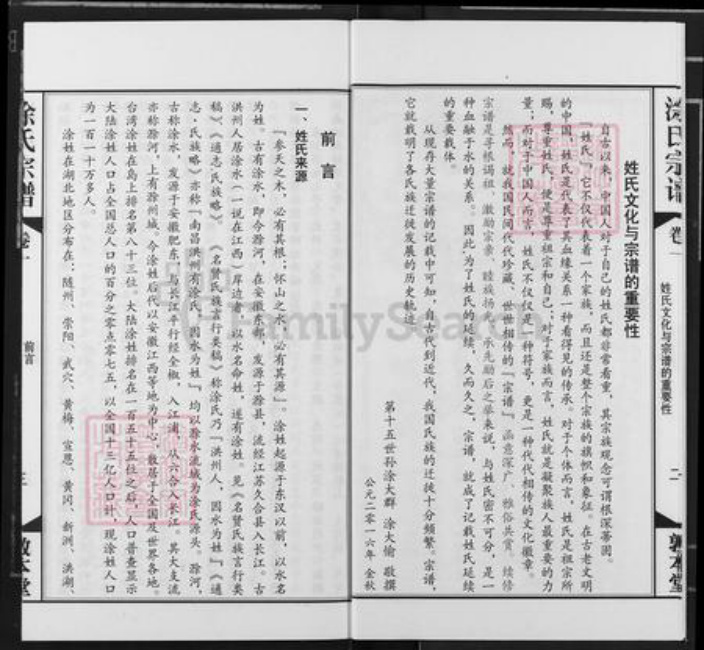 涂氏宗谱
卷一
姓氏文化与宗谱的重要性
二
敦本堂
姓氏文化与宗谱的重要性
自古以来，中国人对于自己的姓氏都非常看重，其宗族观念可谓根深蒂固。
“姓氏”，它不仅代表着一个家族，而且还是整个宗族的旗帜和象征。在古老文明
的中国，姓氏是代表了其血缘关系一种看得见的传承。对于个体而言，姓氏是祖宗所
赐，尊重姓氏，便是尊重祖宗和自己；对于家族而言，姓氏就是凝聚族人最重要的力
量；而对于中国人而言，姓氏不仅仅是一种符号，更是一种代代相传的文化徽章。
然而，就我国民间代代珍藏、世世相传的“宗谱”，函意深广，雅俗共赏，续修
宗谱是寻根谒祖、激励宗亲、睦族扬名、承先励后之举来说，与姓氏密不可分，是一
种血融于水的关系。因此为了姓氏的延续，久而久之，宗谱，就成了记载姓氏延续
的重要载体。
从现存大量宗谱的记载中可知，自古代到近代，我国氏族的迁徙十分频繁。宗谱，
它就载明了各氏族迁徙发展的历史轨迹。
第十五世孙涂大群 涂大愉 敬撰
公元二零一六年 金秋
前言
一、姓氏来源
“参天之木，必有其根；怀山之水，必有其源”。涂姓起源于东汉以前，以水名
为姓。古有涂水，即今滁河，在安徽东部，发源于滁县，流经江苏久合县入长江。古
洪州人居涂水（一说在江西）岸边者，以水名命姓，遂有涂姓。见《名贤氏族言行类
稿》、《通志氏族略》。《名贤氏族言行类稿》称涂氏乃“洪州人，因水为姓”《通
志·氏族略》亦称“南昌洪州有涂氏，因水为姓”，均以涂水流域为涂氏源头。涂河，
古称涂水，发源于安徽肥东，与长江平行经全椒，入江浦，从六合入长江。其大支流
亦称滁河，上有滁州城。今涂姓后代以安徽江西等地为中心，散居于全国及世界各地。
台湾涂姓在岛上排名第八十三位。大陆涂姓排名在一百五十五位之后，人口普查显示
大陆涂姓人口占全国总人口的百分之零点零七五，以全国十三亿人口计，现涂姓人口
为一百一十万多人。
涂姓在湖北地区分布在：随州、崇阳、武穴、黄梅、宣恩、黄冈、新洲、洪湖、
涂氏宗谱
卷一
前言
三
敦本堂
FamilySearch